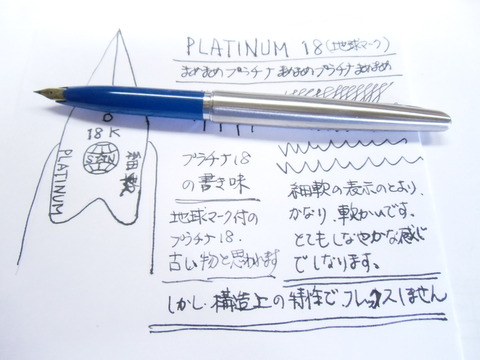 PLATINUM 18(地球マーク)
まめまめプラチナまめまめプラチナまめまめ
18K
細軟
PLATINUM
プラチナ18
の書き味
地球マーク付の
プラチナ18.
古い物と思われます
細軟の表示のとおり、
かなり、軟かいです。
とてもしなやかな感じ
でしなります。
しかし、構造上の特性で、フレックスしません